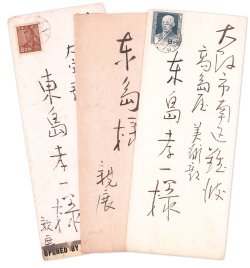 大阪市南区難波
高島屋 美術部
东島孝一様
东島様
親展
東島孝一様
親展
OPENED BY